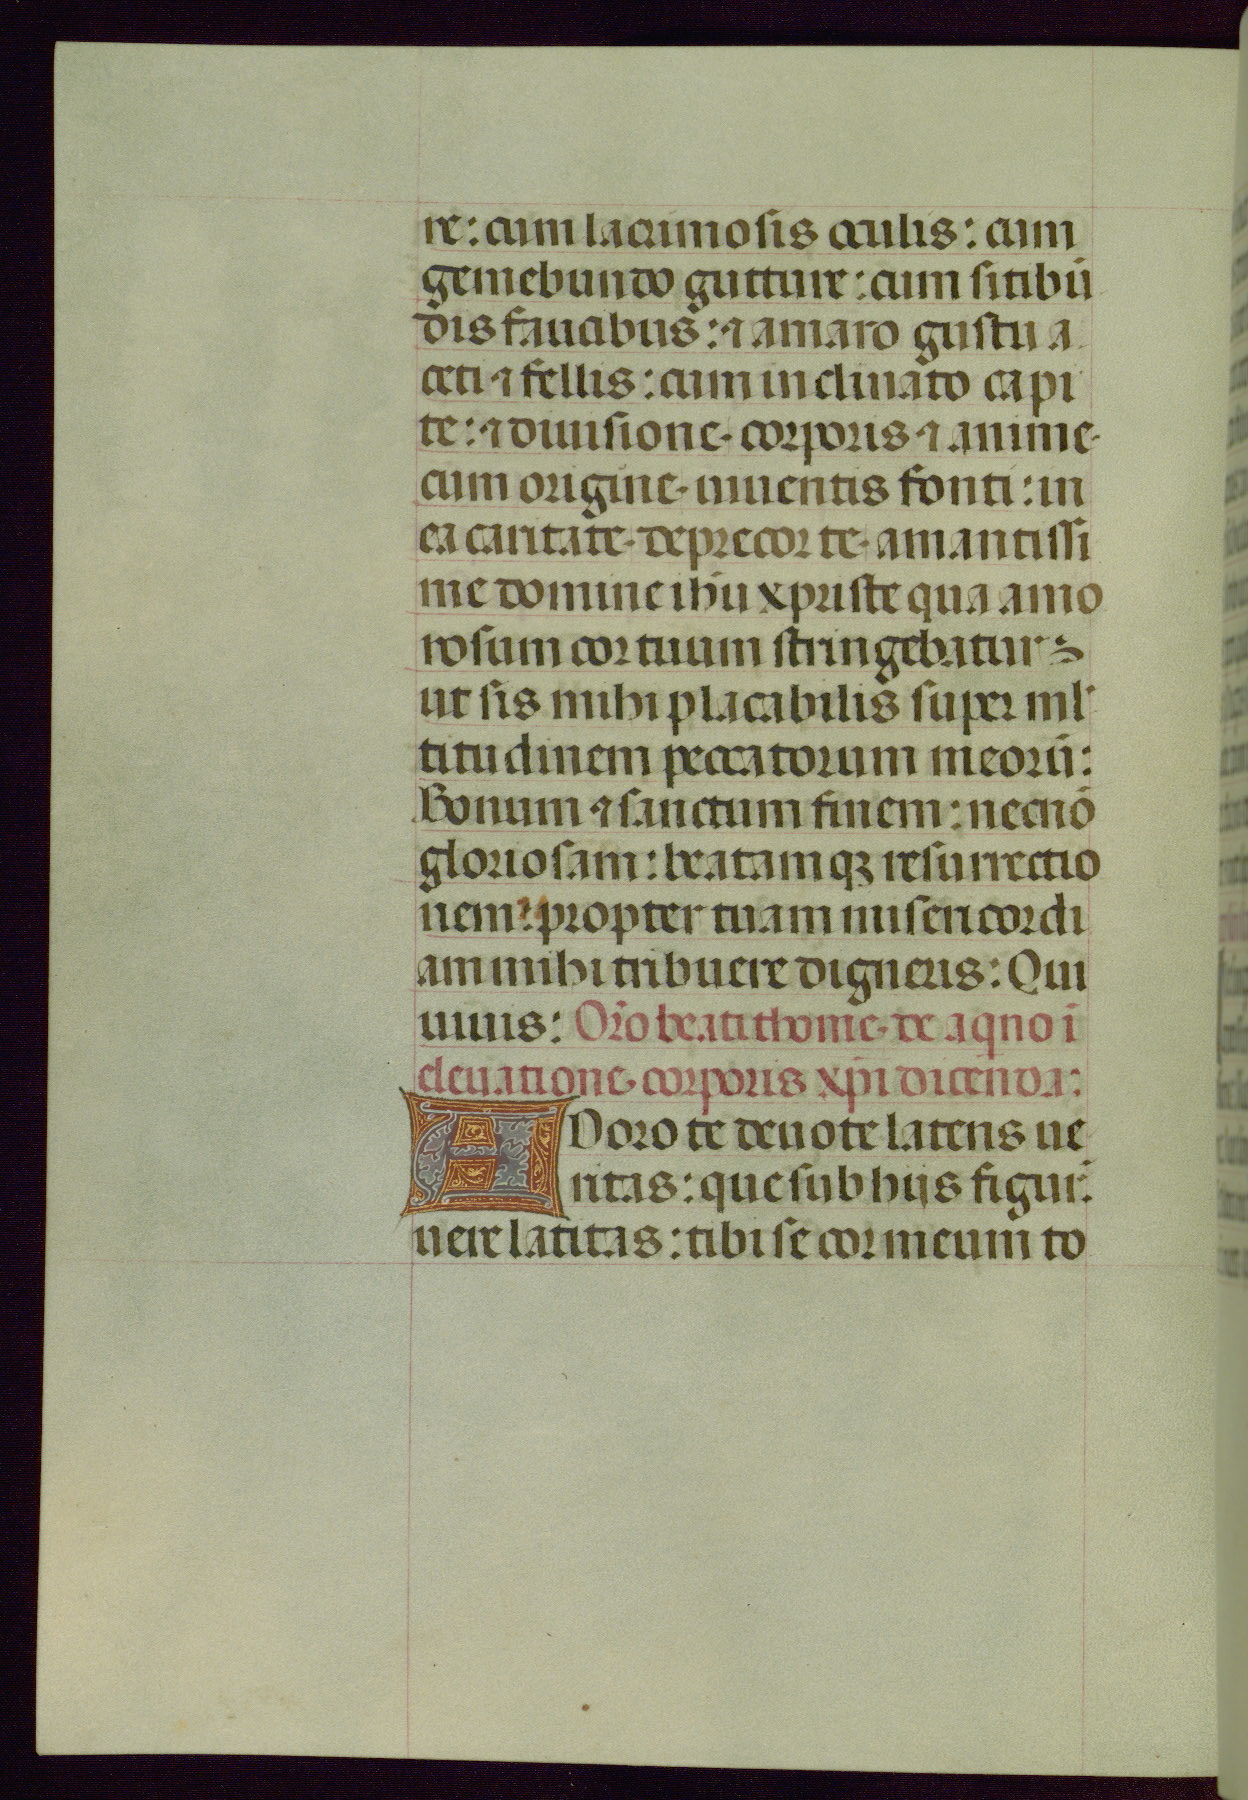 re: cum lacrimosis oculis: cum
gemebundo gutture: cum sitibū
dis faucibus: ⁊ amaro gustu a
ceti ⁊ fellis: cum inclinato capi
te: ⁊ diuisione corporis ⁊ anime
cum origine uiuentis fonti: in
ea caritate deprecor te amantissi
me domine ihū xpriste qua amo
rosum cor tuum stringebatur
ut sis mihi placabilis super ml
titudinem peccatorum meorū:
Bonum ⁊ sanctum finem: necnō
gloriosam: beatamqꝫ resurrectio
nem: propter tuam misericordi
am mihi tribuere digneris: Qui
uiuis: Orō beati thome de aqno ī
eleuatione corporis xpi dicenda:
ADoro te deuote latens ue
ritas: que sub hijs figur̄
uere latitas: tibi se cor meum to